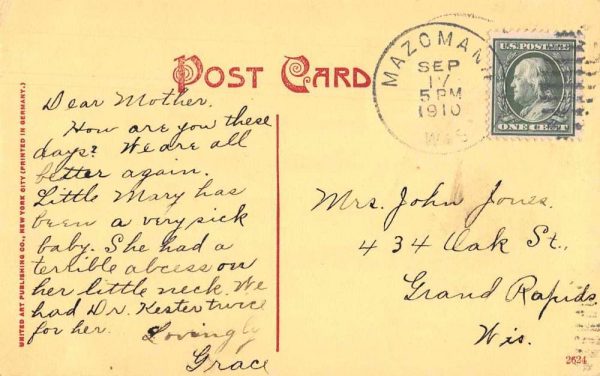 POST CARD
MAZOMANI
SEP
17
5 PM
1910
WIS
U.S. POSTAGE
ONE CENT
Dear Mother.
How are you these
days? We are all
better again.
Little Mary has
been a very sick
baby. She had a
terrible abcess on
her little neck. We
had Dr. Kester twice
for her. Lovingly
Grace
Mrs. John Jones.
434 Oak St.,
Grand Rapids
Wis.
UNITED ART PUBLISHING CO., NEW YORK CITY (PRINTED IN GERMANY.)
2624